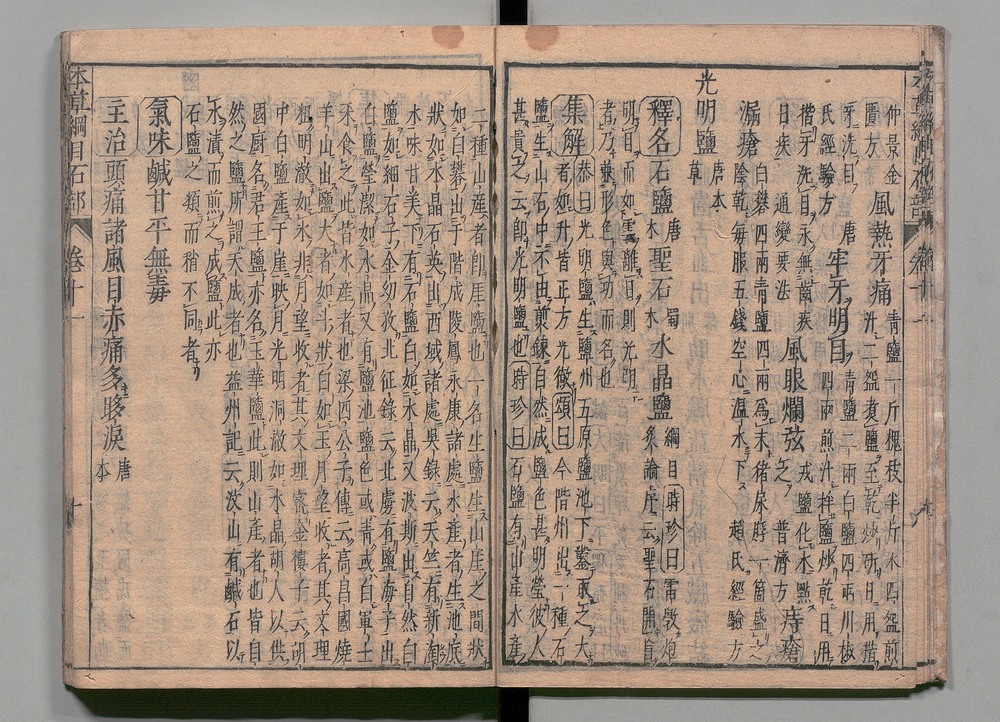 仲景金匱方 風熱牙痛 青鹽一斤槐枝半斤水四盌煎汁二盌煑鹽至乾炒研日用揩
牙洗目 唐氏經驗方 牢牙明目 青鹽二兩白鹽四兩川椒四兩煎汁拌鹽炒乾日用
揩牙洗目永無齒疾目疾 通變要法 風眼爛弦 戎鹽化水點之 普濟方 痔瘡
漏瘡 白礬四兩青鹽四兩爲末猪尿脬一箇盛之陰乾每服五錢空心溫水下 趙氏經驗方
光明鹽 唐本草
釋名 石鹽 唐本 聖石 蜀本 水晶鹽 綱目 時珍曰雷斅炮炙論序云聖石開盲
明目而如雲離日則光明者乃兼形色與功而名也
集解 恭曰光明鹽生鹽州五原鹽池下鑿取之大者如升皆正方光徹 頌曰今階州出一種石
鹽生山石中不由煎鍊自然成鹽色甚明瑩彼人甚貴之云即光明鹽也 時珍曰石鹽有山産水産
二種山産者即崖鹽也一名生鹽生山崖之間狀
如白礬出于階成陵鳳永康諸處水産者生池底
狀如水晶石英出西域諸處吳錄云天竺有新淘
水味甘美下有石鹽白如水晶又波斯出自然白
鹽如細石子金幼孜北征錄云北虜有鹽海子出
白鹽瑩潔如水晶又有鹽池鹽色或青或白軍士
采食之此皆水産者也梁四公子傳云高昌國燒
羊山出鹽大者如斗狀白如玉月望收者其文理
粗明澈如氷非月望收者其文理密金樓子云胡
中白鹽産于崖映月光明洞澈如水晶胡人以供
國厨名君王鹽亦名玉華鹽此則山産者也皆自
然之鹽所謂天成者也益州記云汶山有鹹石以
水漬而煎之成鹽此亦
石鹽之類而稍不同者
氣味 鹹甘平無毒
主治 頭痛諸風目赤痛多眵淚 唐本
本草綱目石部 卷十一 十